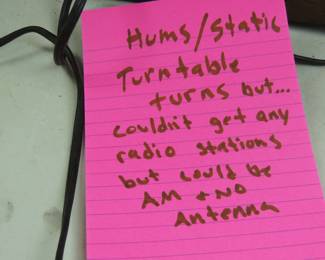 Hums/Static
Turntable
turns but...
couldn't get any
radio stations
but could be
AM + NO
Antenna